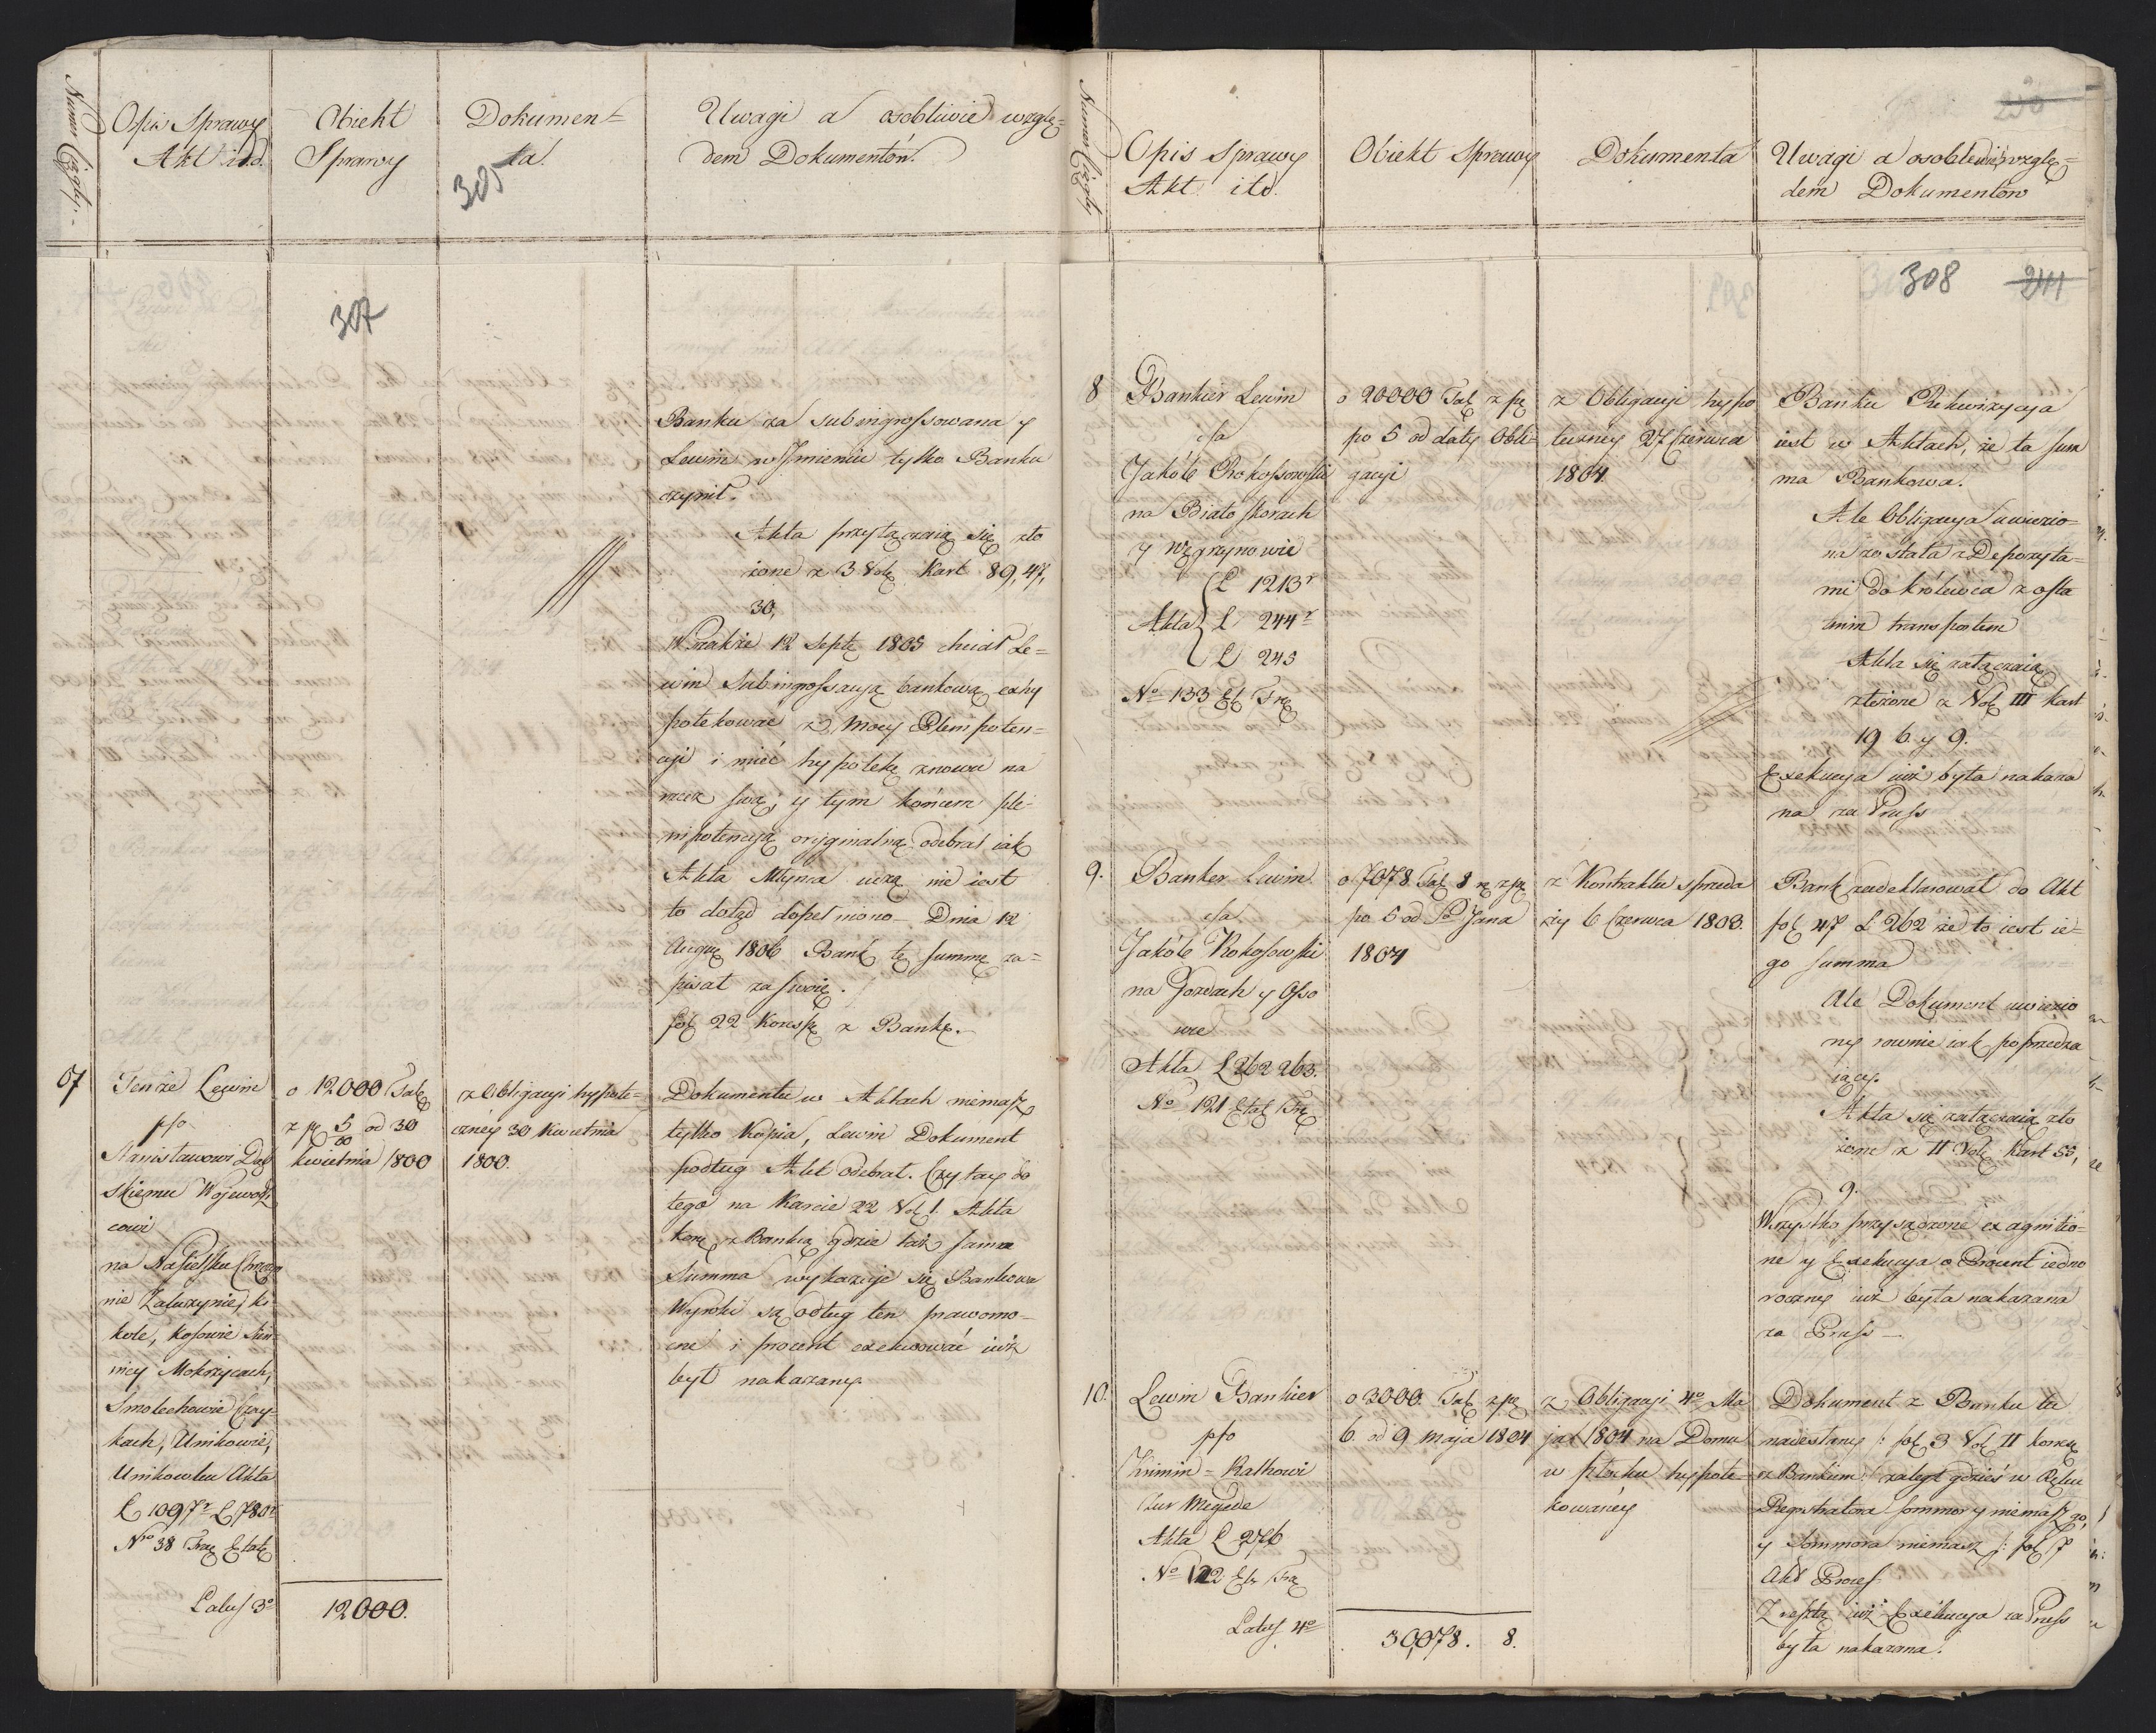 Numer Ciągły.
Opis Sprawy
Akt itd.
Obiekt
Sprawy
Dokumen=
ta.
305
Uwagi a osobliwie wzglę=
dem Dokumentów.
307
Banku za subingrossowana y
Lewin w Imieniu tylko Banku
czynił.
Akta przyłączaią się zło
żone z 3 Vol. Kart 89, 47,
30,
Wszakże 12 Septr 1805 chciał Le=
win Subingrossacyą bankową exhy
potekować z Mocy Plenipoten=
cyi i mieć hypotekę znowu na
rzecz swą; y tym końcem ple=
nipotencyą oryginalną odebrał iak
Akta Młynca uczą nie iest
to dotąd dopełniono – Dnia 12
1806 Bank tę summę za=
pisał za swoię.
fol 22 Koresp z Bank.
07
Tenże Lewin
pso
Stanisławowi
skiemu Wojewodzi
cowi
na Nasielsku
nie Załuzynie,
kole, Kosowie
nicy Mokrzycach,
Smolechowie
kach, Unikowie,
Akta
L 1097r L 780r
No 38
Latus 3o
o 12000 Tal
z pr 5 od 30
kwietnia 1800
12000.
z Obligacyi hypote=
cznéy 30 Kwietnia
1800.
Dokumentu w Aktach niemasz
tylko Kopia, Lewin Dokument
podług Akt odebrał. Czytay do
tego na Karcie 22 Vol I. Akta
kore z Bankiem gdzie taż sama
Summa wykazuje się Bankowa
Wyroki są odług ten prawomo=
cne i procent exekwować iuż
był nakazany.
Numer Ciągły
Opis Sprawy
Akt itd.
Obiekt Sprawy
Dokumenta
Uwagi a osobliwie wzglę=
dem Dokumentów
308 241
8
Bankier Lewin
csa
Jakób Rokossowski
na Białoskorach
y Węgrzynowie
L 1213r
Akta L 244r
L 245
No 133 Et Trą
o 20000 Tal z pr
po 5 od daty Obli=
gacyi
z Obligacyi hypo
teczney 27 Czerwca
1804.
Banku Rekwizycya
iest w Aktach, że ta sum
ma Bankowa.
Ale Obligacya uwiezio=
na została z Depozyta=
mi do Królewca z osta
tnim transportem
Akta się załączaią
złożone z Vol III kart
19 6 y 9.
Exekucya iuż była nakaza
na za Pruss
9.
Banker Lewin
csa
Jakób Rokosowski
na Gozdach y Osso
wie
Akta L 262 263.
No 121 Etat Trą
o 7078 Tal 8 z pr
po 5 od S Jana
1804
z Kontraktu sprzeda
ży 6 Czerwca 1803.
Bank zadeklarował do Akt
fol 47 L 262 że to iest ie=
go summa
Ale Dokument uwiezio
ny rownie iak poprzedza
iący.
Akta się załączaią zło
żone z II Vol Kart 55,
9.
Wszystko przysądzone ex agnitio=
ne y Exekucya o Procent iedno
roczny iuż była nakazana
za Pruss –
10.
Lewin Bankier
pso
Krimin= Rathowi
zur Megede
Akta L 276
No 122 Et Trą
Latus 4o
o 3000. Tal z pr
6. od 9 maja 1804
30,078. 8.
z Obligacyi 4o Ma
ja 1804 na Domu
w Płocku hypote=
kowanéy
Dokument z Banku tu
nadesłany /: fol 3 Vol II koresp
z Bankiem:/ zaległ gdzieś w Ręku
Registratora Sommor y niemasz go,
y Sommora niemasz /: fol 7
Akt Proces
Zresztą iuż Exekucya za Pruss
była nakazana.